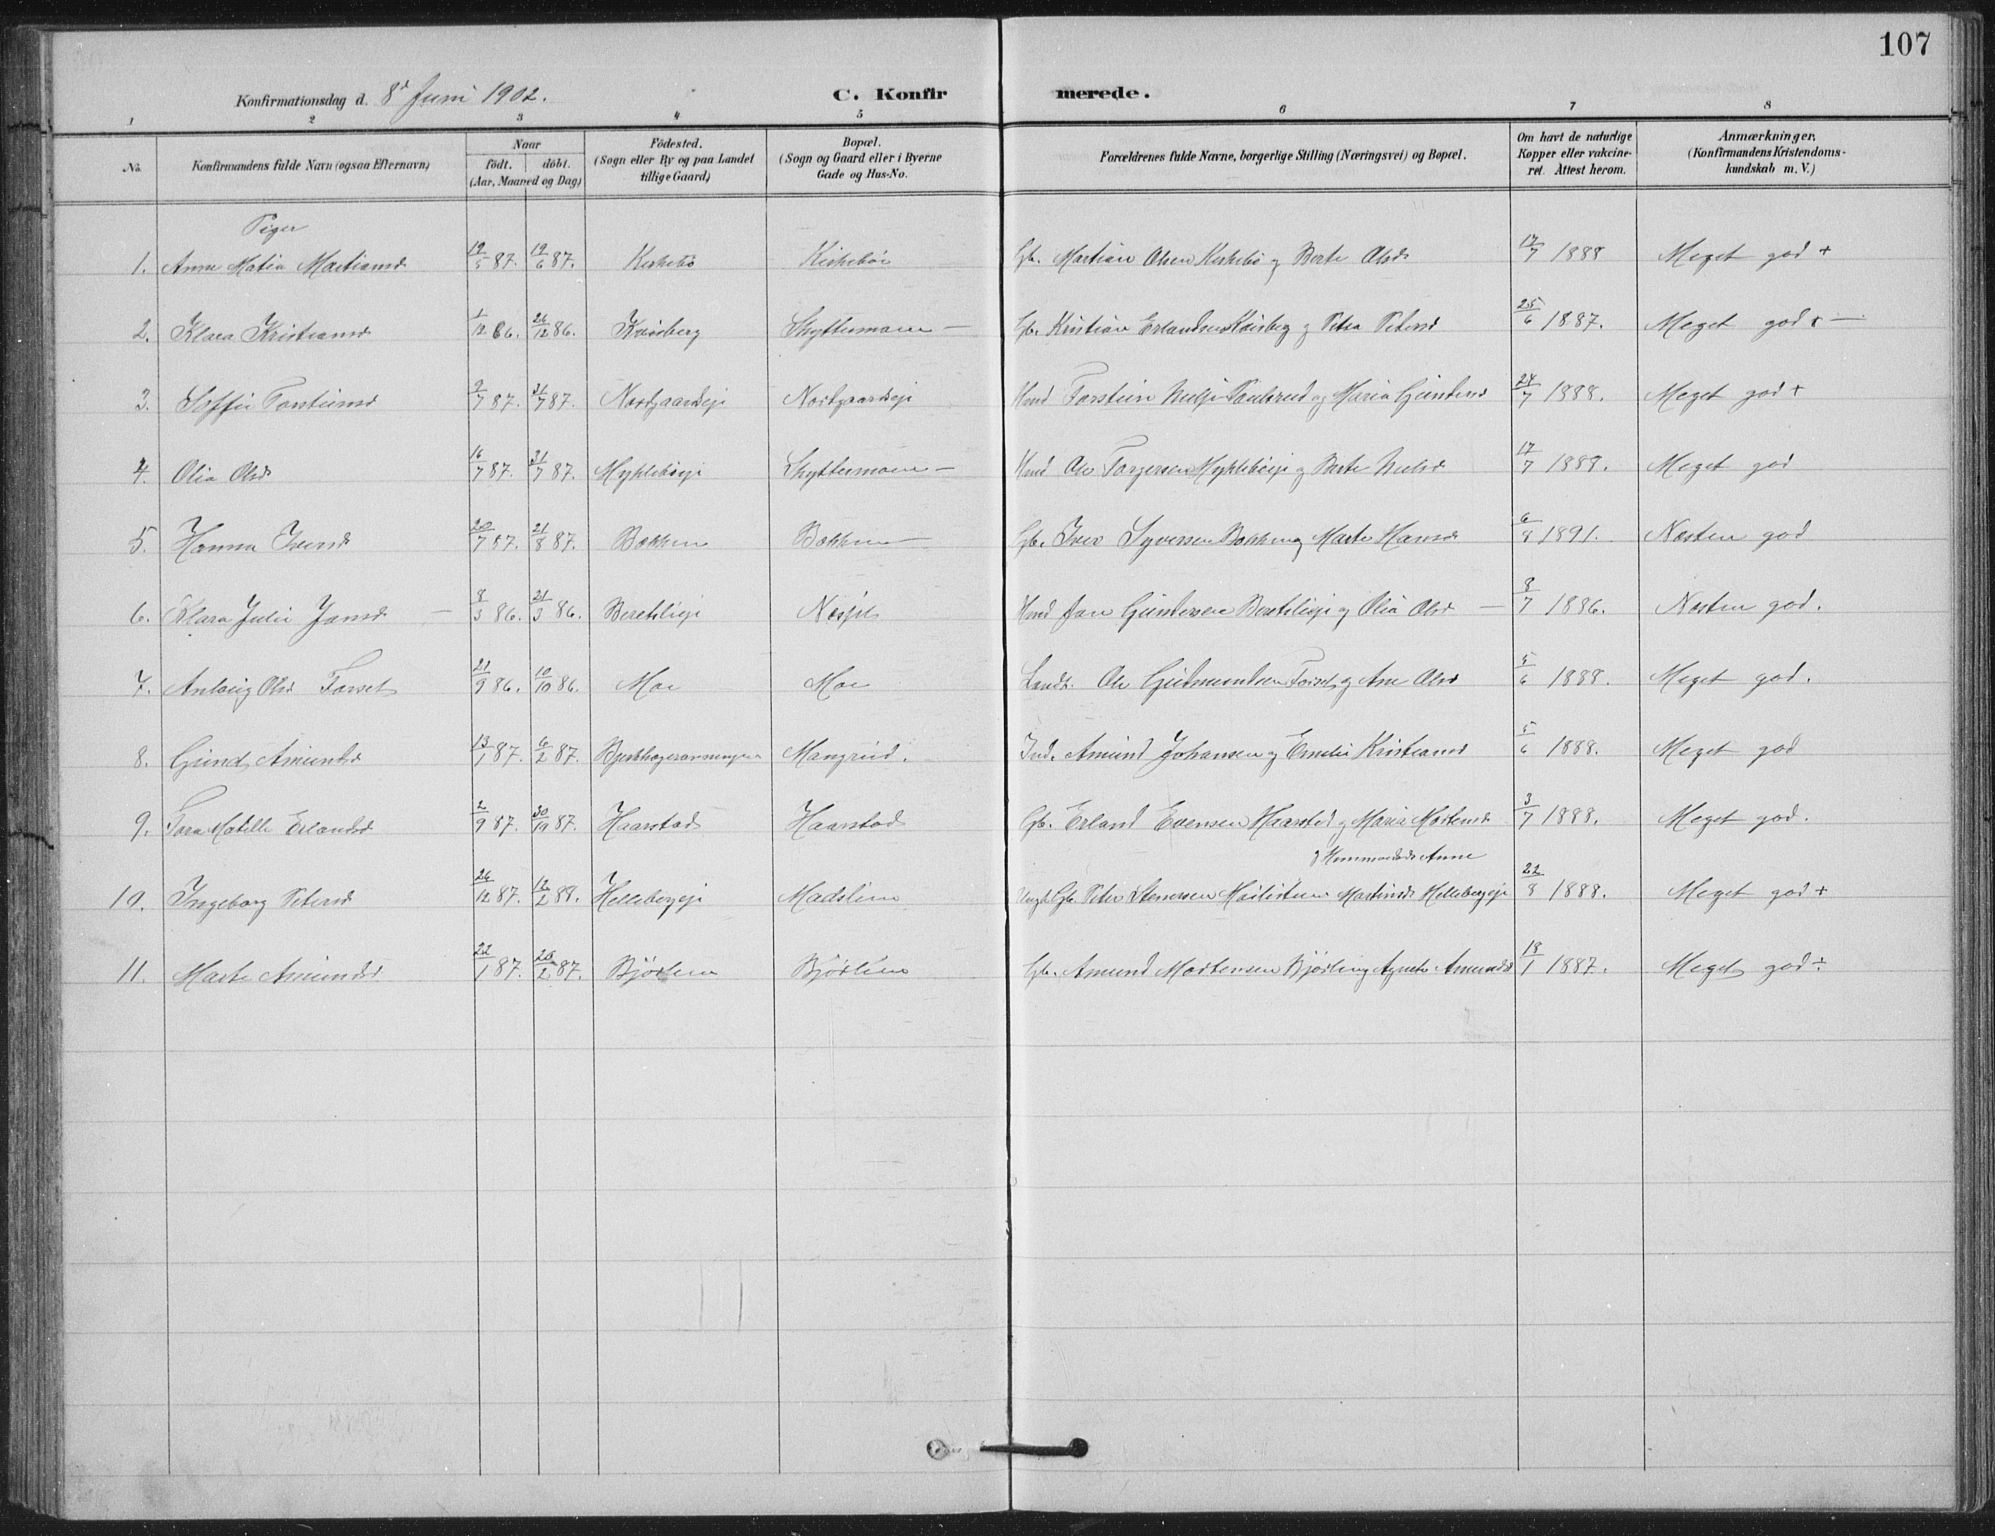 107
Konfirmationsdag d. 8d Juni 1902. C. Konfirmerede.
1 2 3 4 5 6 7 8
No. Konfirmandens fulde Navn (ogsaa Efternavn) Naar födt. döbt. (Aar, Maaned og Dag) Födested. (Sogn eller By og paa Landet tillige Gaard) Bopæl. (Sogn og Gaard eller i Byerne Gade og Hus-No. Forældrenes fulde Navne, borgerlige Stilling (Næringsvei) og Bopæl. Om havt de naturlige Kopper eller vakcineret. Attest herom. Anmærkninger. (Konfirmandens Kristendomskundskab m. V.)
Piger
1. Anne Matia Martiansd 19/5 87. 19/6 87. Kirkebö Kirkebö Gb. Martian Olsen Kirkebö og Berte Olsd 17/7 1888 Meget god +
2. Klara Kristiansd 1/12 86. 26/12 86. Kvisberg Skyttermoen — Gb. Kristian Erlandsen Kvisberg og Petra Petersd 25/6 1887. Meget god + —
3. Soffie Torsteinsd 9/7 87. 31/7 87. Nordgaardseje Nordgaardseje Hmd Torstein og Maria 24/7 1888. Meget god +
4. Olia Olsd 16/7 87. 31/7 87. Myklebyeje Skyttermoen — Hmd Ole Torgersen Myklebyeje og Berte Nielsd 17/7 1889. Meget god
5. Hanna Iversd 20/7 87. 21/8 87. Bakken Bakken — Gb. Iver Syversen Bakken og Marte Hansd 6/8 1891. Næsten god
6. Klara Julie Jansd — 8/3 86. 21/3 86. Beretslieje Næsset Hmd Jan Gundersen Beretslieje og Olia Olsd — 8/7 1886. Næsten god.
7. Anlaug Olsd Forset 21/9 86. 10/10 86. Moe Moe Landh. Ole Gudmundsen Forset og Ane Olsd 5/6 1888. Meget god.
8. Gunda Amundsd 13/1 87. 6/2 87. Mangrud. Ind. Amund Johansen og Emelie Kristiansd 5/6 1888. Meget god
9. Tora Matille Erlandsd 2/9 87. 30/10 87. Haarstad Haarstad Gb. Erland Evensen Haarstad og Maria Mortensd 3/7 1888. Meget god.
og Hummordsd Anne
10. Ingeborg Petersd 26/12 87. 12/2 88. Hellebergeje Madslien Ungk. Gb. Peter Stenersen Martinsd Hellebergeje 22/8 1888. Meget god +
11. Marte Amundsd 22/1 87. 20/2 87. Bjørlien Bjørlien Gb. Amund Mortensen Bjørlien og Agnete Amundsd 18/1 1887. Meget god ÷